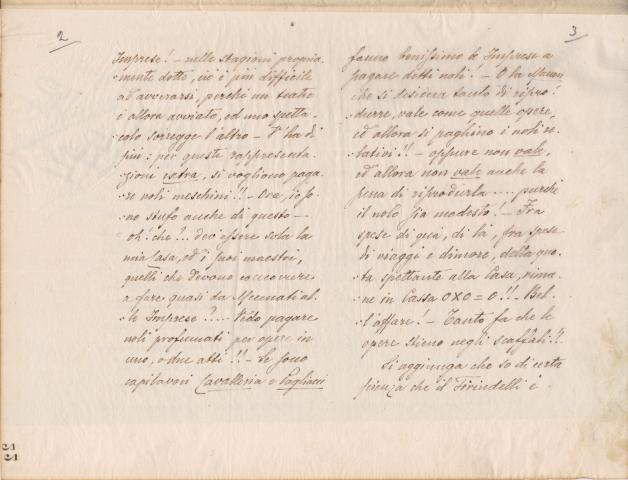 2
Imprese! - nelle stagioni propria-
-mente dette, ciò è più difficile
ad avverarsi, perchè un teatro
è allora avviato, ed uno spetta-
-colo sorregge l'altro - V'ha di
più: per queste rappresenta-
-zioni extra, si vogliono paga-
-re noli meschini!! - Ora, io so-
-no stufo anche di questo -
oh! che?... dev'essere sola la
mia Casa, ed i suoi maestri,
quelli che devono concorrere
a fare quasi da Mecenati al-
-le Imprese?.... Vedo pagare
noli profumati per opere in
uno, o due atti!! - Se sono
capilavori Cavalleria e Pagliacci
3
fanno benissimo le Imprese a
pagare detti noli! - O la Manon
che si desidera tanto di ripro-
durre, vale come quelle opere,
ed allora si paghino i noli re-
-lativi!! - oppure non vale,
ed allora non vale anche la
pena di riprodurla .... purchè
il nolo sia modesto! - Fra
spese di qua, di là, fra spese
di viaggi e dimore, della quo-
-ta spettante alla Casa, rima-
-ne in Cassa 0X0=0!! - Bel-
-l'affare! - Tanto fa che le
opere stieno negli scaffali!!
Si aggiunga che so di certa
scienza che il Tirindelli è